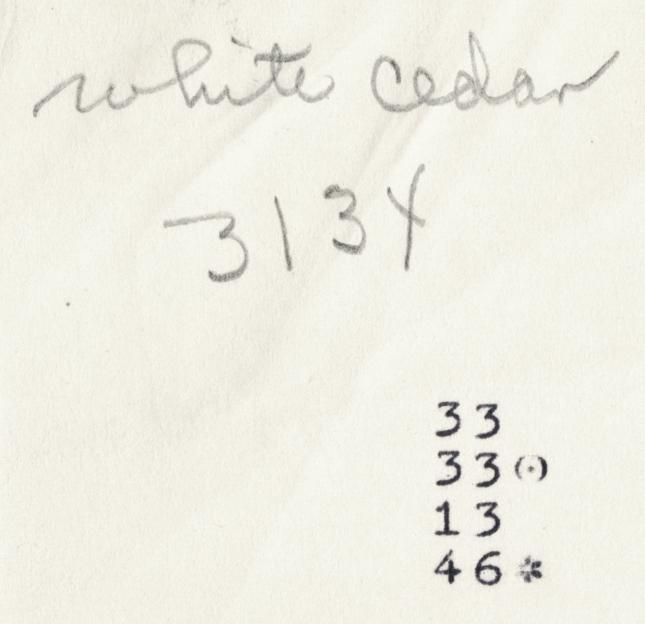 white cedar
3134
33
33(·)
13
46*